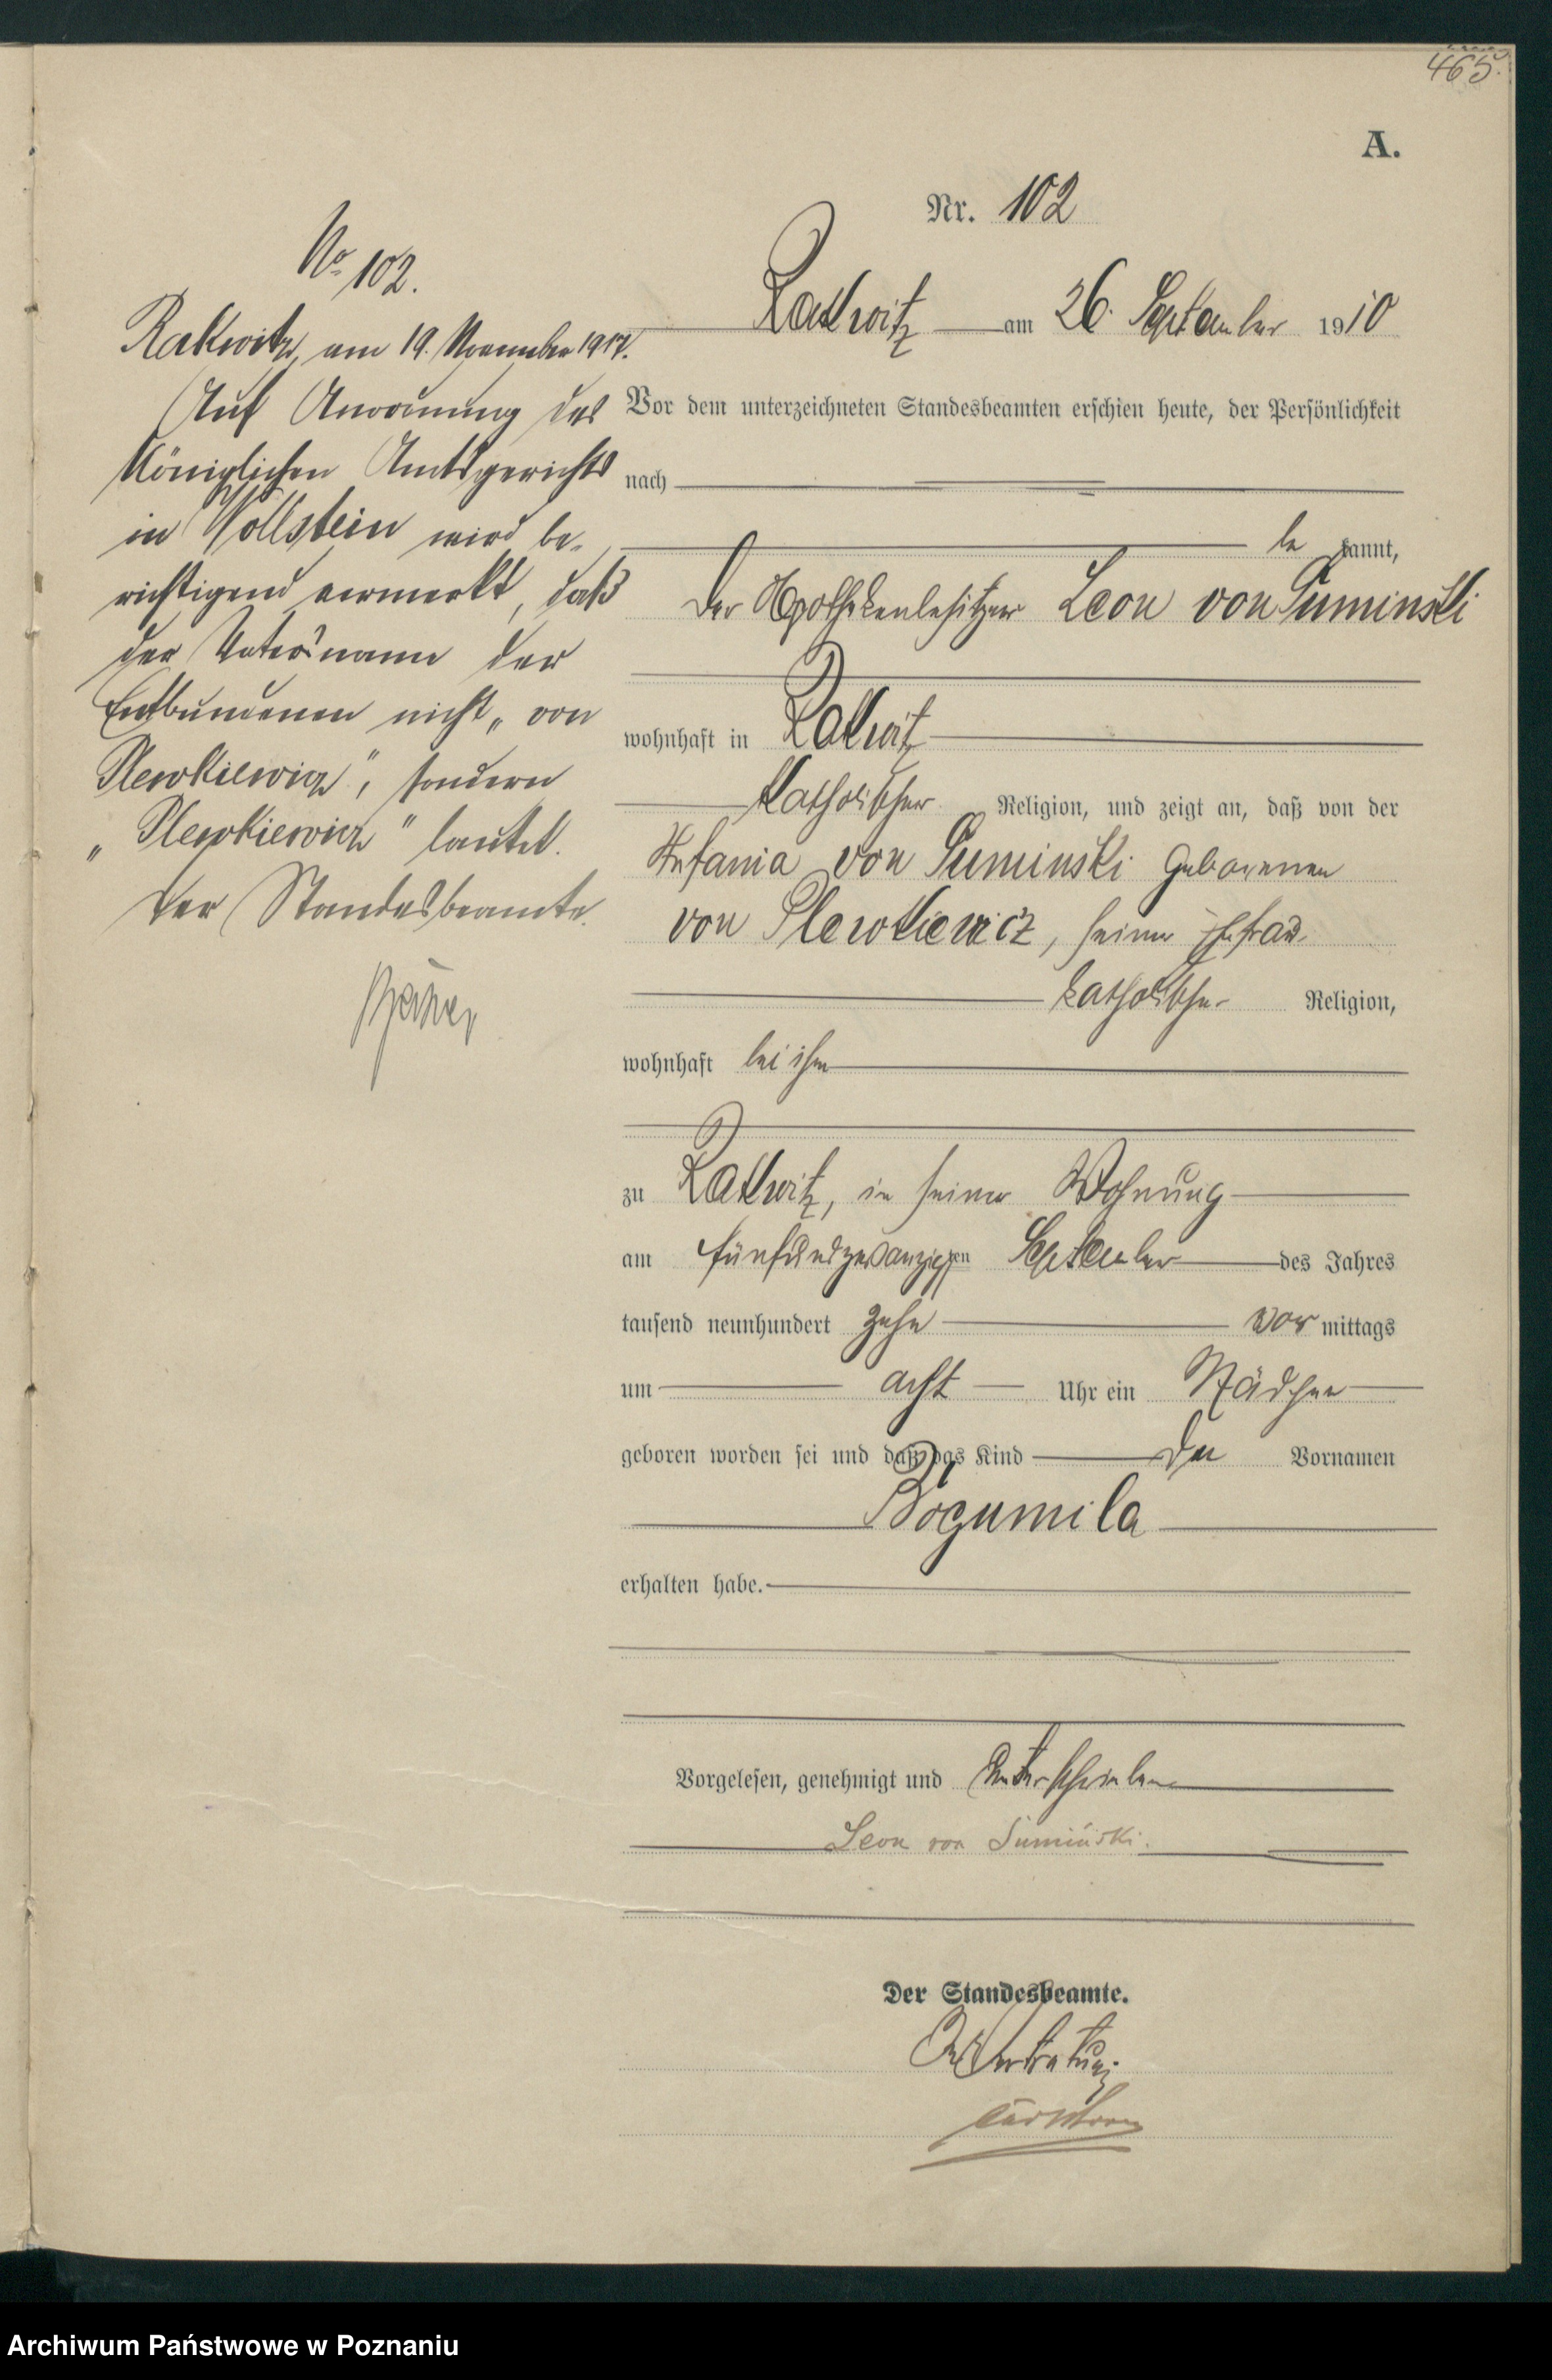 465.
A.
Nr. 102
Rakwitz am 26. September 1910
Vor dem unterzeichneten Standesbeamten erschien heute, der Persönlichkeit
nach
be kannt,
der Apothekenbesitzer Leon von Suminski
wohnhaft in Rakwitz
katholischer Religion, und zeigt an, daß von der
Stefania von Suminski geborenen
von Plewkiewicz, seiner Ehefrau
katholischer Religion,
wohnhaft bei ihm
zu Rakwitz, in seiner Wohnung
am fünfundzwanzigsten September des Jahres
tausend neunhundert zehn vor mittags
um acht Uhr ein Mädchen
geboren worden sei und daß das Kind den Vornamen
Bogumila
erhalten habe.
Vorgelesen, genehmigt und unterschrieben
Leon von Sumiński.
Der Standesbeamte.
In Vertretung
No 102.
Rakwitz, am 19. November 1917.
Auf Anordnung des
Königlichen Amtsgerichts
in Wollstein wird be-
richtigend vermerkt, daß
der Vatersname der
Entbundenen nicht „von
Plewkiewicz", sondern
„Plewkiewicz" lautet.
Der Standesbeamte.
Archiwum Państwowe w Poznaniu